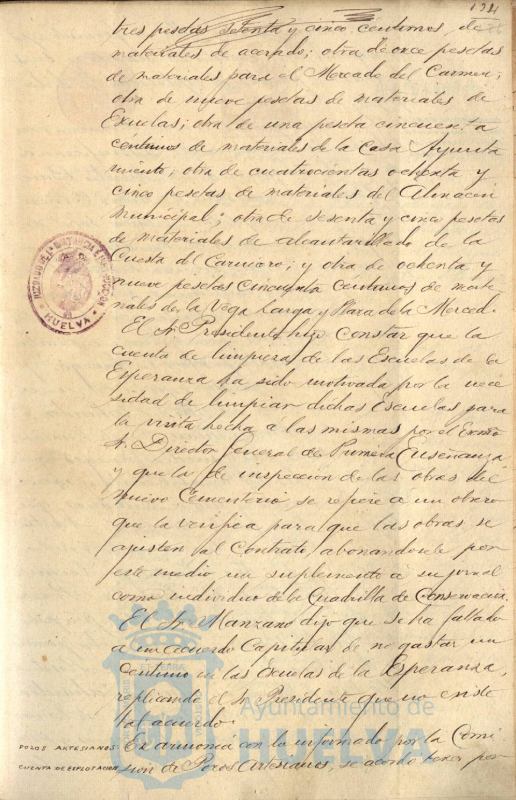 134
tres pesetas setenta y cinco centimos, de
materiales de acerado; otra de once pesetas
de materiales para el Mercado del Carmen;
otra de nueve pesetas de materiales de
Escuelas; otra de una peseta cincuenta
centimos de materiales de la Casa Ayunta
miento; otra de cuatrocientas ochenta y
cinco pesetas de materiales del Almacen
Municipal; otra de sesenta y cinco pesetas
de materiales de alcantarillado de la
Cuesta del Carnicero; y otra de ochenta y
nueve pesetas cincuenta centimos de mate
riales de la Vega Larga y Plaza de la Merced.
El Sr. Presidente hizo constar que la
cuenta de limpieza de las Escuelas de la
Esperanza ha sido motivada por la nece
sidad de limpiar dichas Escuelas para
la visita hecha a las mismas por el Excmo
Sr. Director General de Primera Enseñanza
y que la de inspeccion de las obras del
nuevo Cementerio se refiere a un obrero
que la verifica para que las obras se
ajusten al Contrato, abonandosele por
este medio un suplemento a su jornal
como individuo de la Cuadrilla de Conservacion.
El Sr. Manzano dijo que se ha faltado
a un acuerdo Capitular de no gastar un
centimo en las Escuelas de la Esperanza,
replicando el Sr. Presidente que no existe
tal acuerdo.
POZOS ARTESIANOS: En armonia con lo informado por la Comi
CUENTA DE EXPLOTACION sion de Pozos Artesianos, se acordo tener por
JUZGADO DE 1ª INSTANCIA E INSTRUCCION
HUELVA
Ayuntamiento de
HUELVA